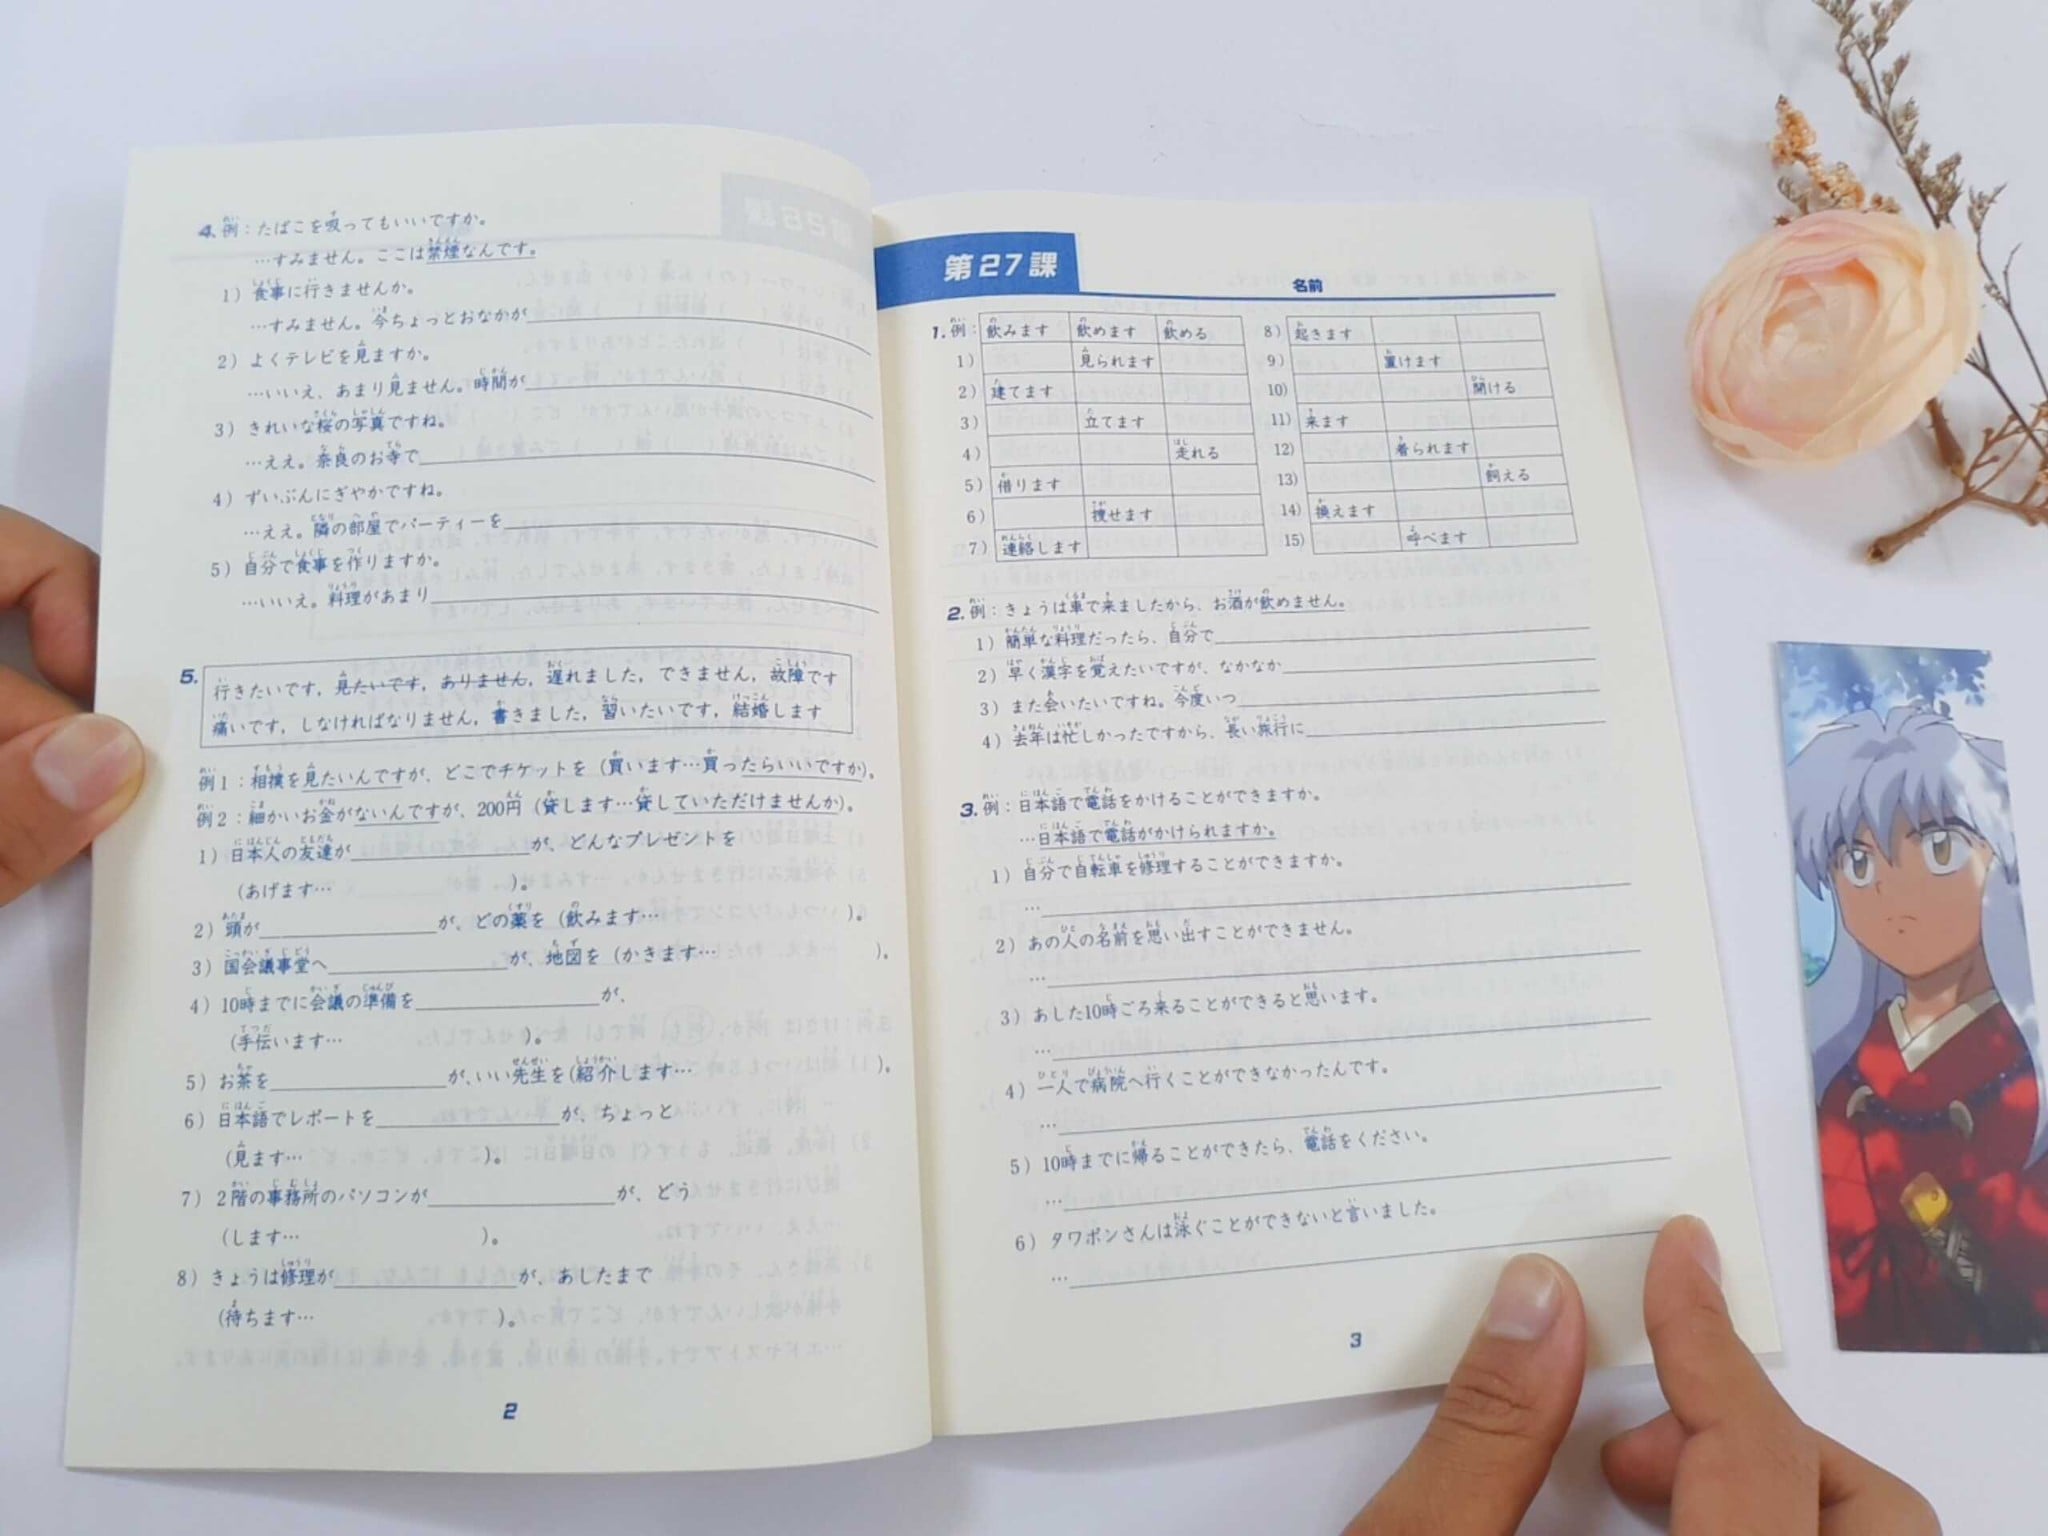 4. 例：たばこを吸ってもいいですか。
…すみません。ここは禁煙なんです。
1) 食事に行きませんか。
…すみません。今ちょっとおなかが
2) よくテレビを見ますか。
…いいえ、あまり見ません。時間が
3) きれいな桜の写真ですね。
…ええ。奈良のお寺で
4) ずいぶんにぎやかですね。
…ええ。隣の部屋でパーティーを
5) 自分で食事を作りますか。
…いいえ。料理があまり
5.
行きたいです，見たいです，ありません，遅れました，できません，故障です
痛いです，しなければなりません，書きました，習いたいです，結婚します
例1：相撲を見たいんですが、どこでチケットを (買います…買ったらいいですか)。
例2：細かいお金がないんですが、200円 (貸します…貸していただけませんか)。
1) 日本人の友達が が、どんなプレゼントを
(あげます… )。
2) 頭が が、どの薬を (飲みます… )。
3) 国会議事堂へ が、地図を (かきます… )。
4) 10時までに会議の準備を が、
(手伝います… )。
5) お茶を が、いい先生を(紹介します… )。
6) 日本語でレポートを が、ちょっと
(見ます… )。
7) 2階の事務所のパソコンが が、どう
(します… )。
8) きょうは修理が が、あしたまで
(待ちます… )。
2
第27課
名前
1. 例： 飲みます 飲めます 飲める
1) 見られます
2) 建てます
3) 立てます
4) 走れる
5) 借ります
6) 捜せます
7) 連絡します
8) 起きます
9) 置けます
10) 開ける
11) 来ます
12) 着られます
13) 飼える
14) 換えます
15) 呼べます
2. 例：きょうは車で来ましたから、お酒が飲めません。
1) 簡単な料理だったら、自分で
2) 早く漢字を覚えたいですが、なかなか
3) また会いたいですね。今度いつ
4) 去年は忙しかったですから、長い旅行に
3. 例：日本語で電話をかけることができますか。
…日本語で電話がかけられますか。
1) 自分で自転車を修理することができますか。
…
2) あの人の名前を思い出すことができません。
…
3) あした10時ごろ来ることができると思います。
…
4) 一人で病院へ行くことができなかったんです。
…
5) 10時までに帰ることができたら、電話をください。
…
6) タワポンさんは泳ぐことができないと言いました。
…
3